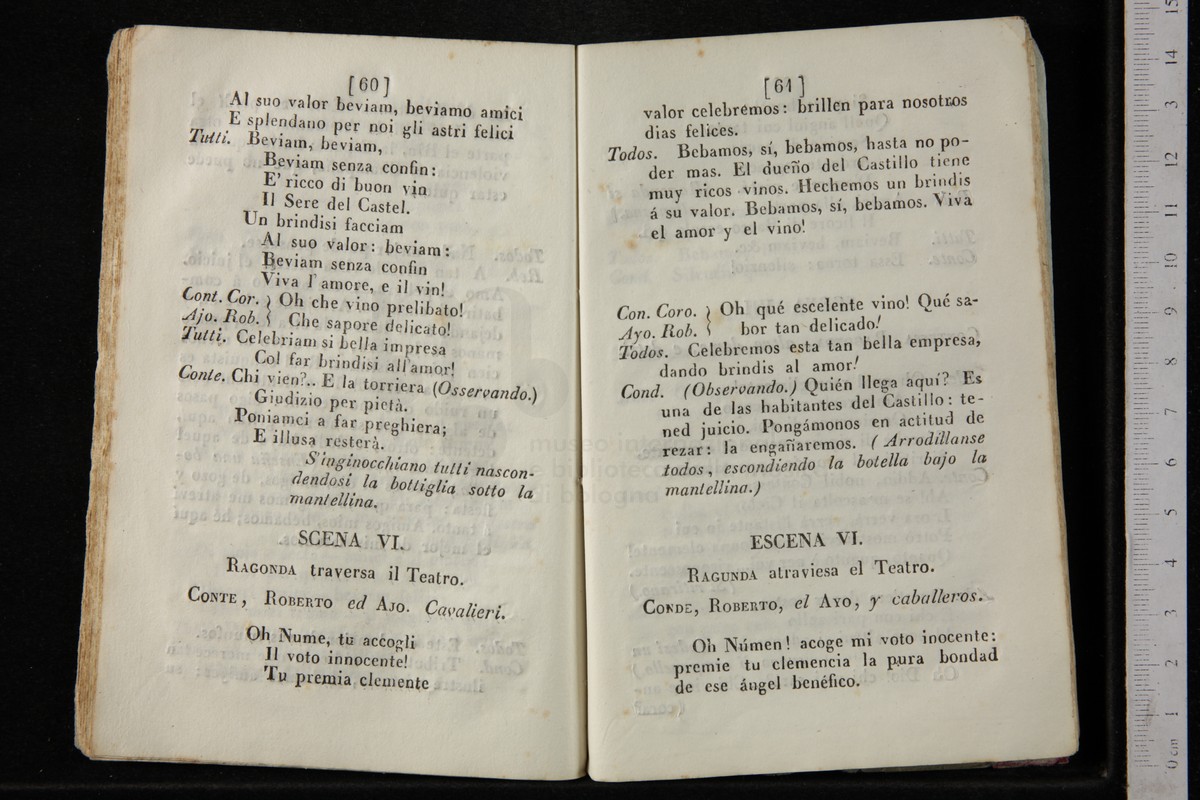 [60]
Al suo valor beviam, beviamo amici
E splendano per noi gli astri felici
Tutti. Beviam, beviam,
Beviam senza confin:
E' ricco di buon vin
Il Sere del Castel.
Un brindisi facciam
Al suo valor: beviam:
Beviam senza confin
Viva l'amore, e il vin!
Cont. Cor. } Oh che vino prelibato!
Ajo. Rob. { Che sapore delicato!
Tutti. Celebriam si bella impresa
Col far brindisi all'amor!
Conte. Chi vien?.. E la torriera (Osservando.)
Giudizio per pietà.
Poniamci a far preghiera;
E illusa resterà.
S'inginocchiano tutti nascon-
dendosi la bottiglia sotto la
mantellina.
SCENA VI.
RAGONDA traversa il Teatro.
CONTE, ROBERTO ed AJO. Cavalieri.
Oh Nume, tu accogli
Il voto innocente!
Tu premia clemente
[61]
valor celebremos: brillen para nosotros
dias felices.
Todos. Bebamos, sí, bebamos, hasta no po-
der mas. El dueño del Castillo tiene
muy ricos vinos. Hechemos un brindis
á su valor. Bebamos, sí, bebamos. Viva
el amor y el vino!
Con. Coro. } Oh qué escelente vino! Qué sa-
Ayo. Rob. { bor tan delicado!
Todos. Celebremos esta tan bella empresa,
dando brindis al amor!
Cond. (Observando.) Quién llega aquí? Es
una de las habitantes del Castillo: te-
ned juicio. Pongámonos en actitud de
rezar: la engañaremos. (Arrodíllanse
todos, escondiendo la botella bajo la
mantellina.)
ESCENA VI.
RAGUNDA atraviesa el Teatro.
CONDE, ROBERTO, el AYO, y caballeros.
Oh Númen! acoge mi voto inocente:
premie tu clemencia la pura bondad
de ese ángel benéfico.
museo internazionale
e biblioteca della musica
di bologna
0 cm 1 2 3 4 5 6 7 8 9 10 11 12 3 14 15